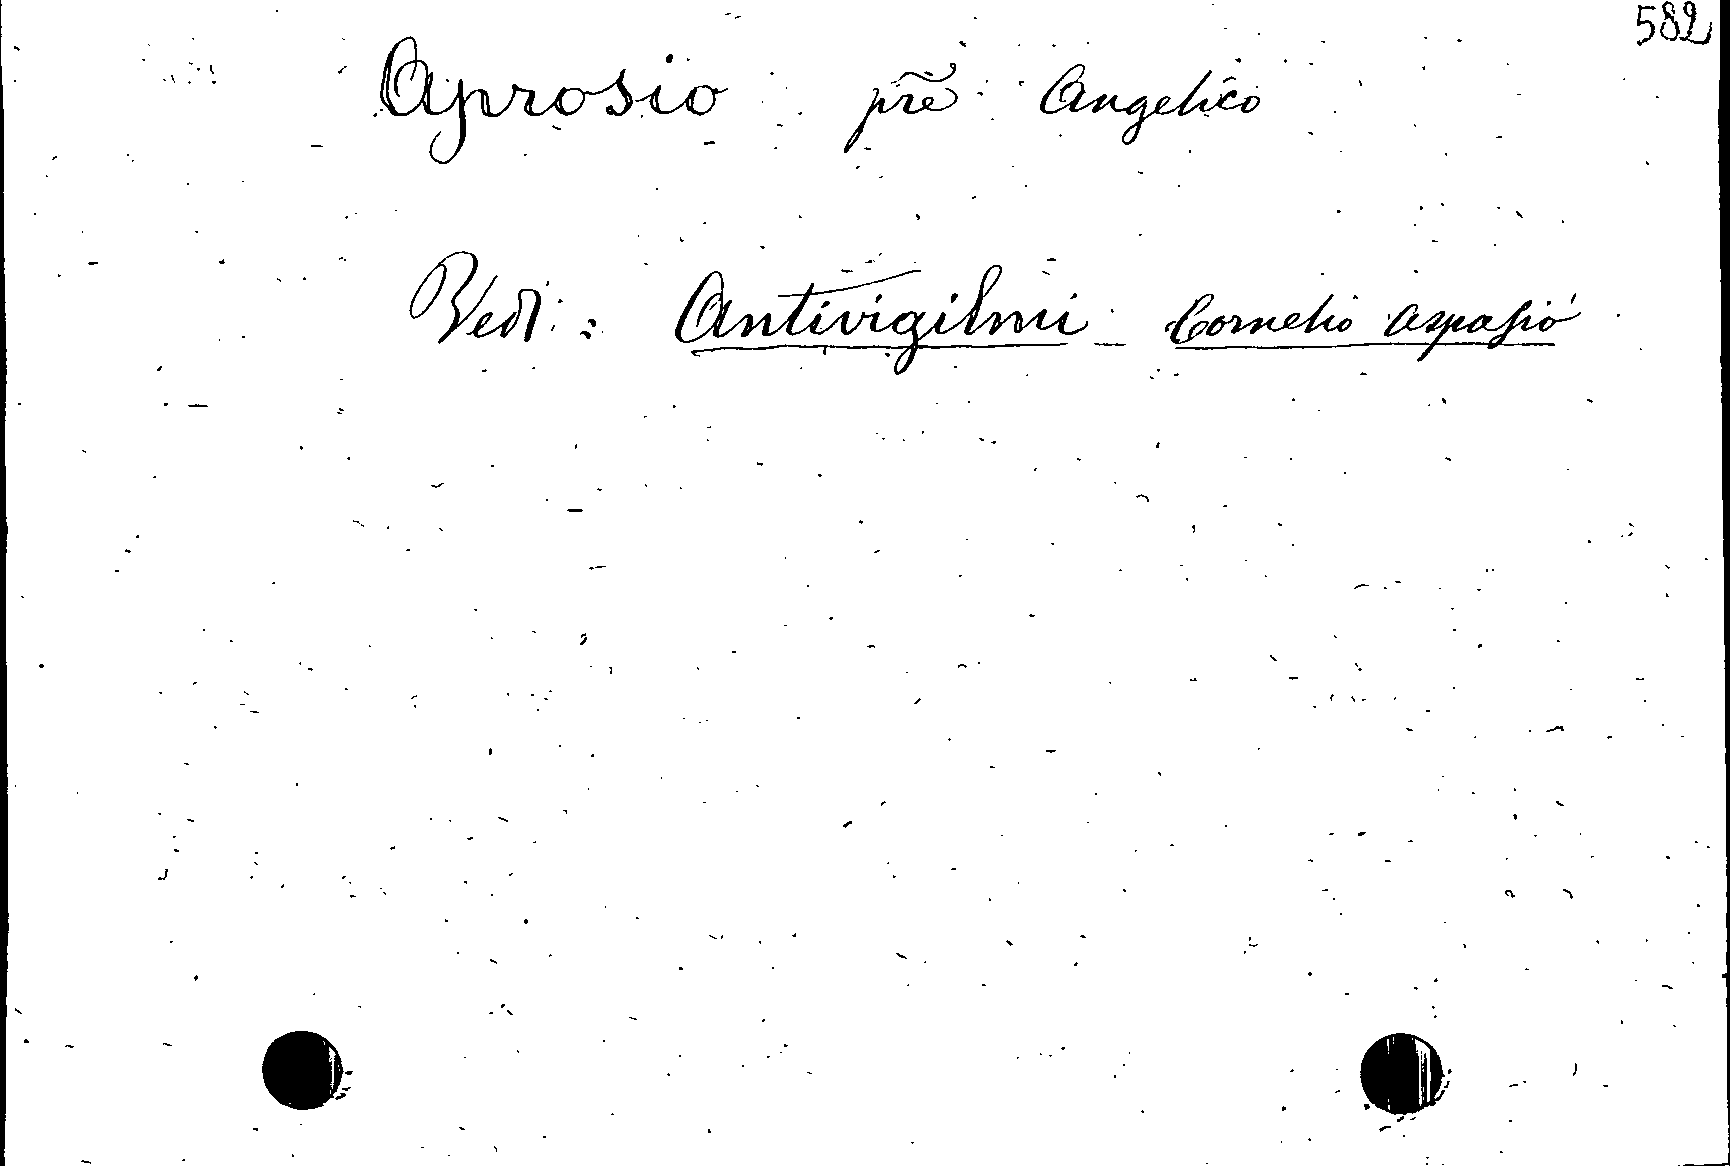 582
Aprosio prẽ Angelico
Vedi: Antivigilmi Cornelio Aspasio